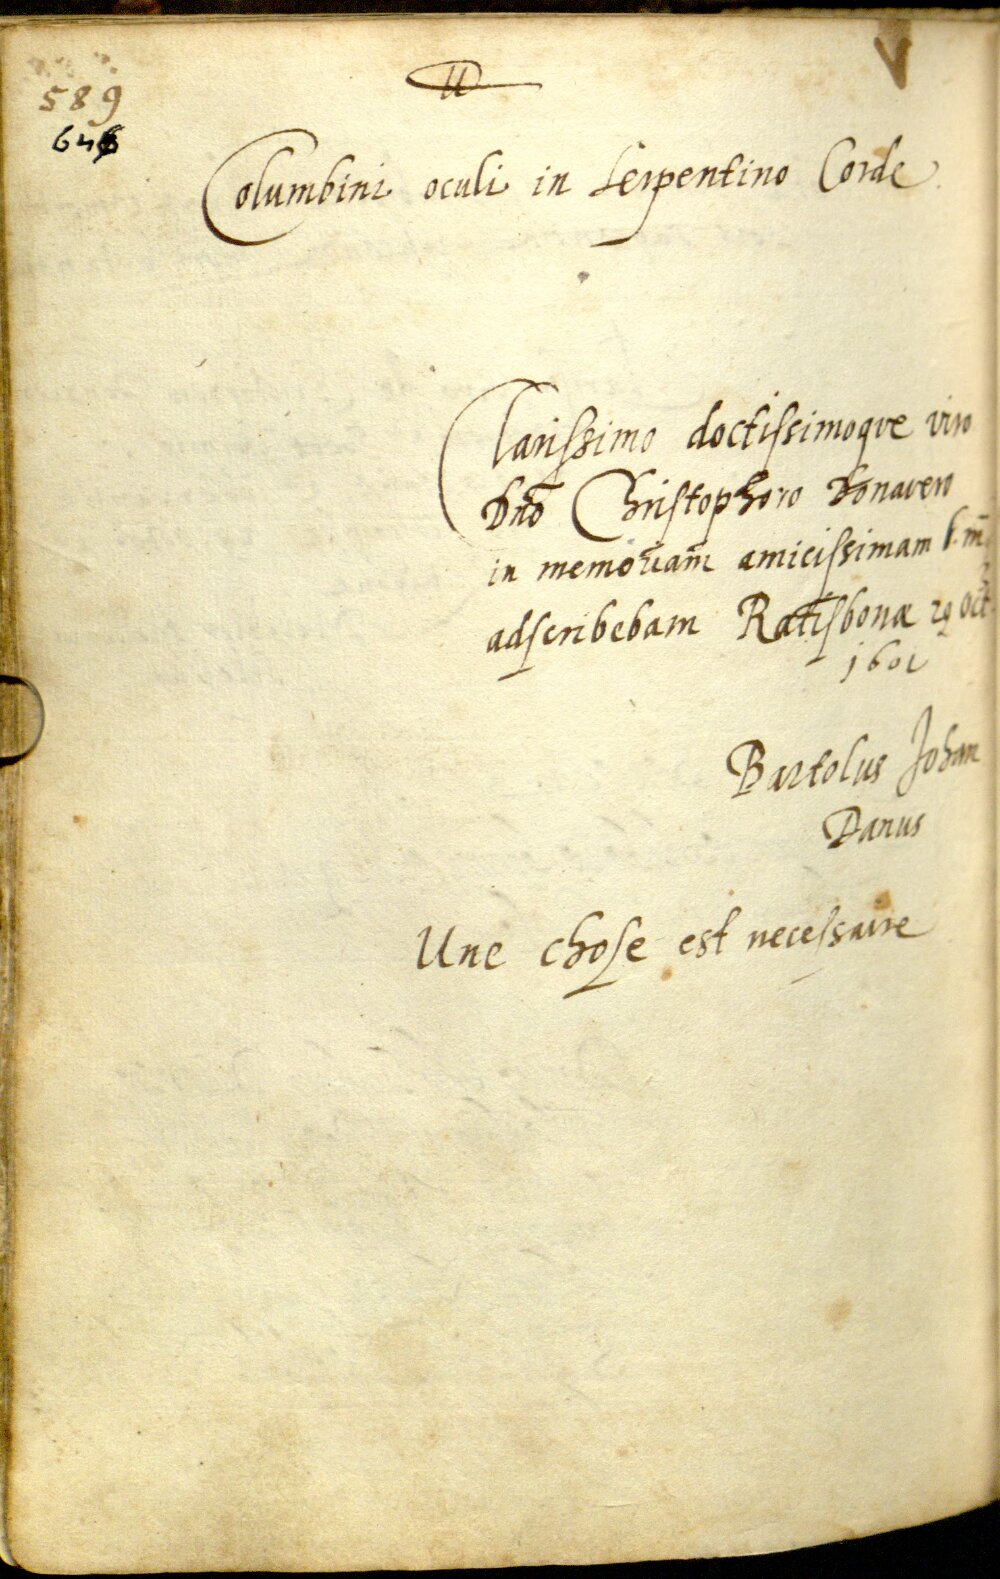 589
646
Columbini oculi in Serpentino Corde
Clarissimo doctissimoqve viro
Dnō Christophoro Donavero
in memoriam amicissimam
adscribebam Ratisbonæ 29 Oct
1601
Bartolus Johan
Danus
Une chose est necessaire